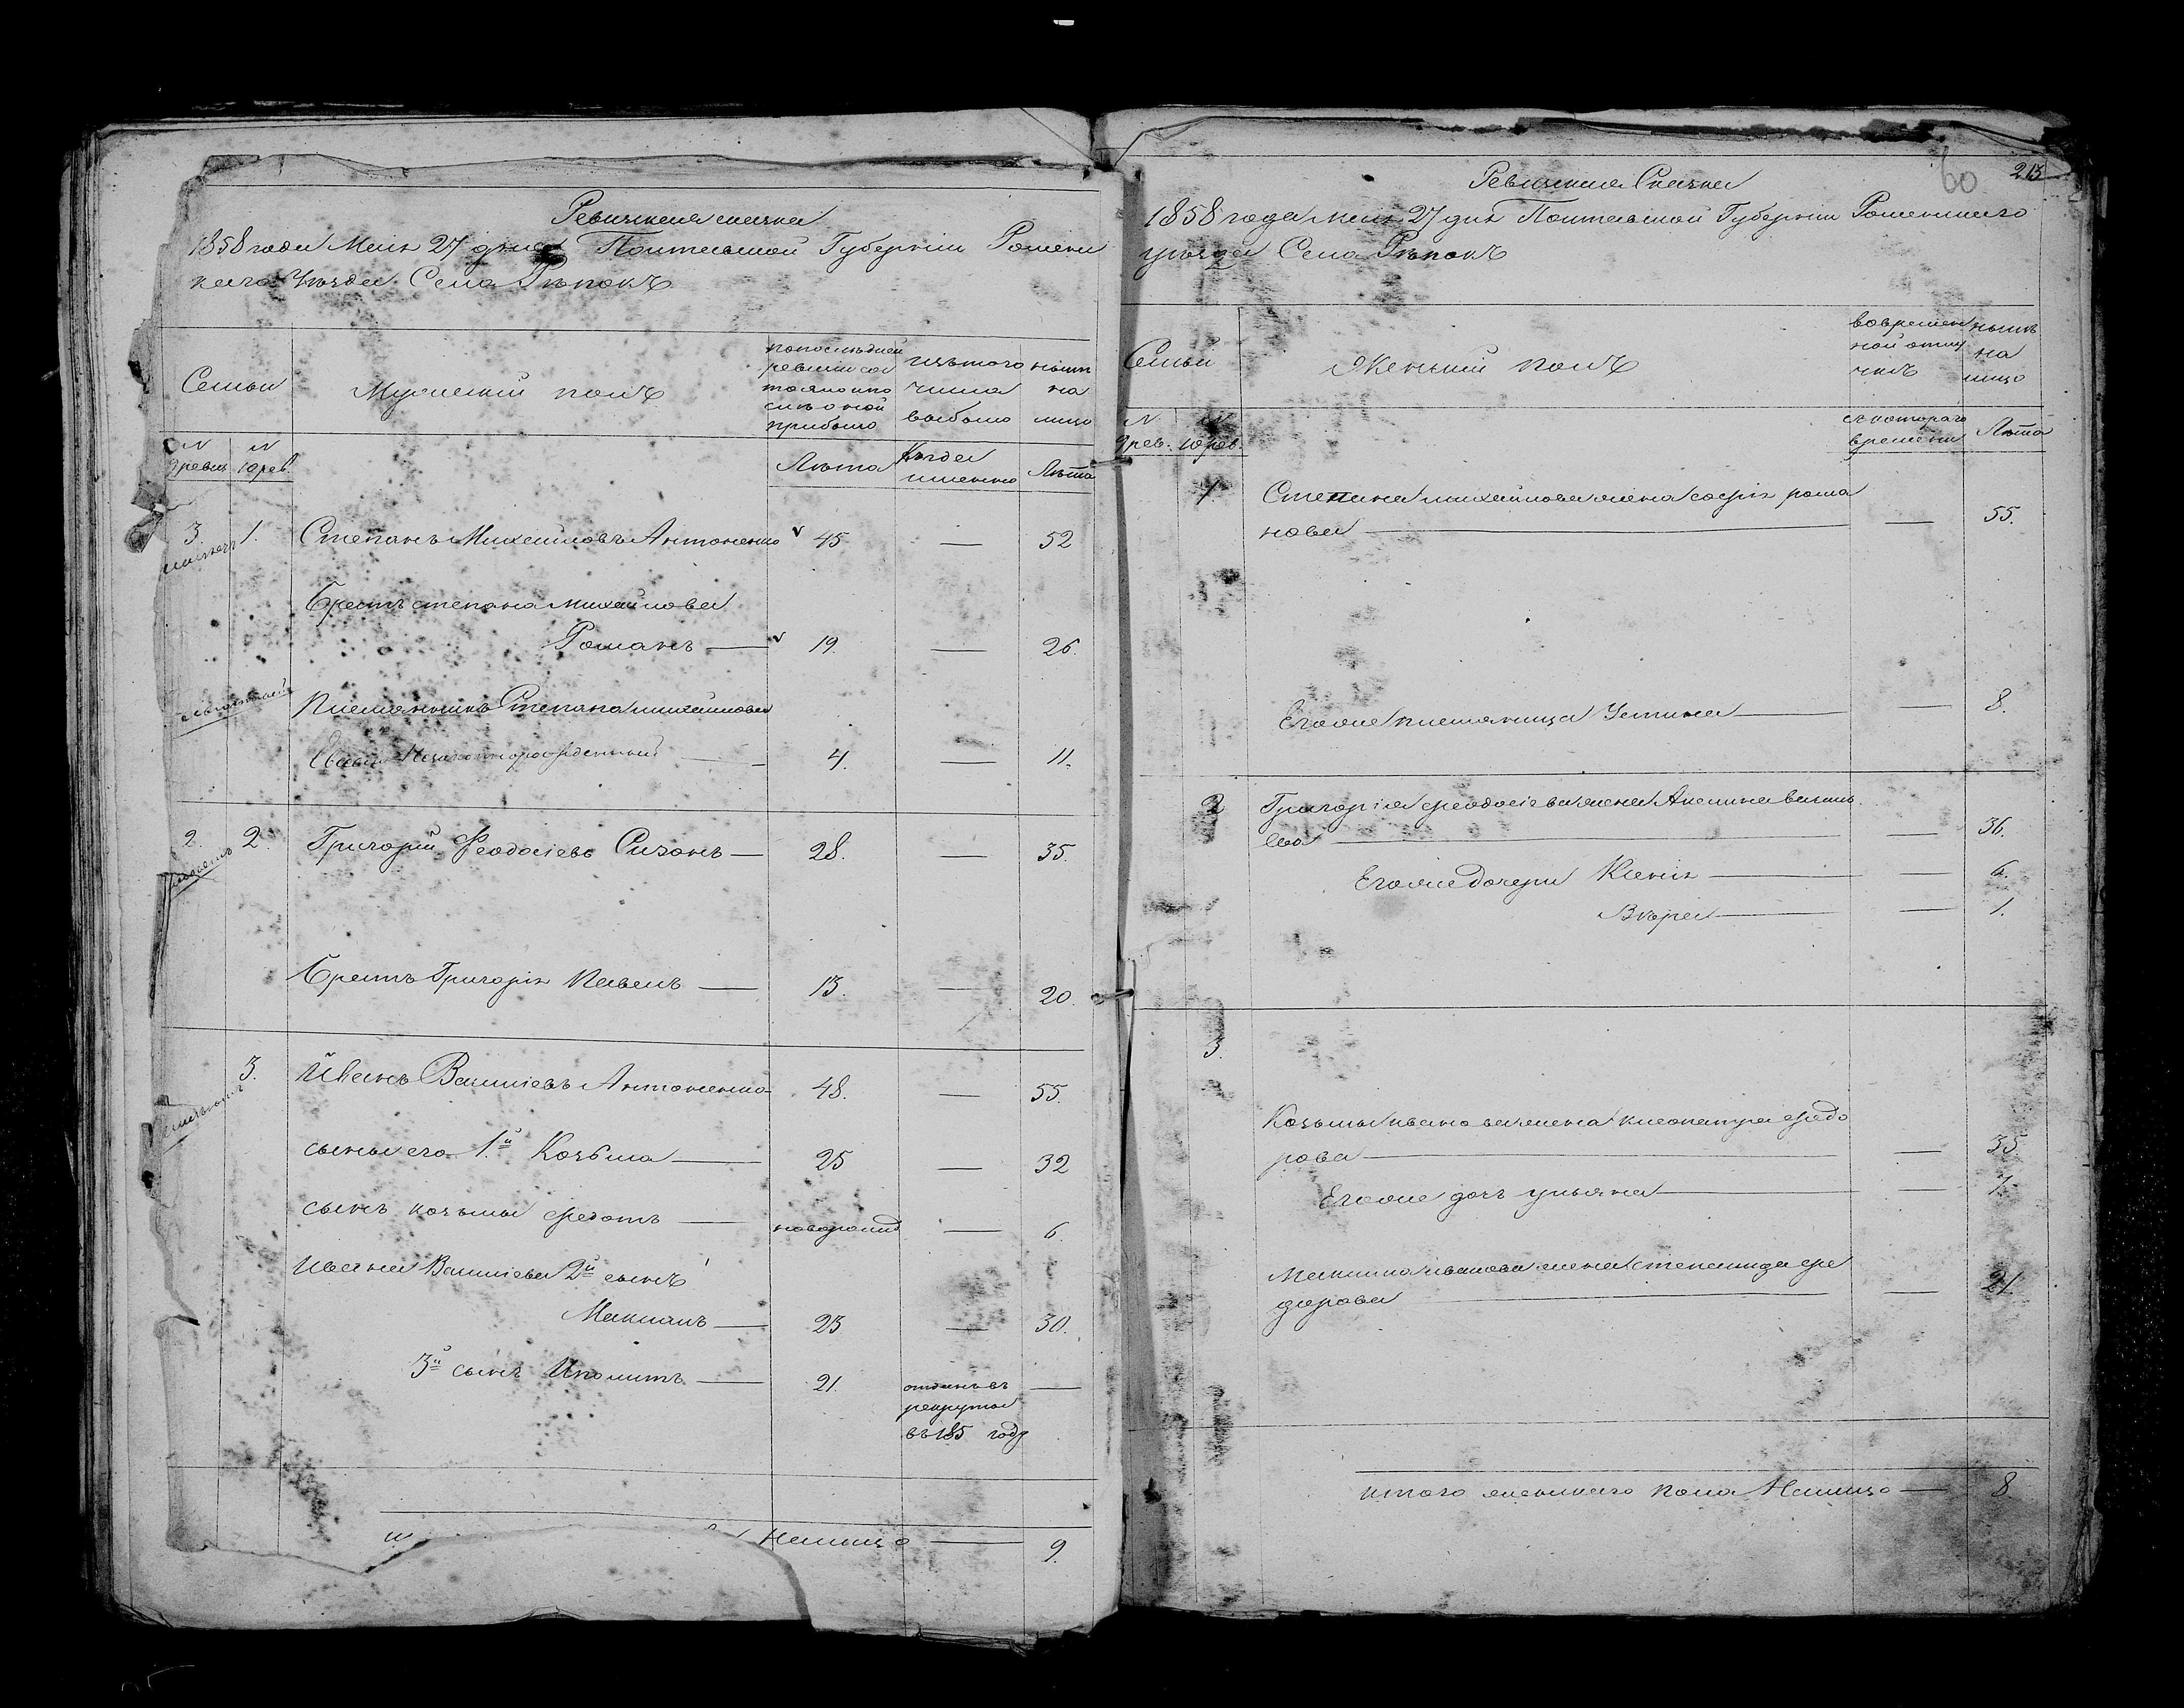 Ревизская сказка
1858 года Мая 27 дня Полтавской Губернии Роменс
каго Уезда Села Рѣпокъ
Семьи
Мужеский полъ
попоследней
ревизии сос
тояло и по
слѣ оной
прибыло
изътого
числа
выбыло
нынѣ
на
лицо
N
9 ревиз.
N
10 рев.
Лѣта
Когда
именно
Лѣта
3. 1. Степанъ Михайловъ Антоненко 45 — 52
Братъ степана Михайлова
Романъ — 19. — 26.
Племянникъ Степана михайлова
незаконнорожденный — 4. — 11.
2. 2. Григорий Феодосіевъ Сизонъ — 28. — 35.
Братъ Григорія Павелъ — 13. — 20.
3. Иванъ Василіевъ Антоненко 48. — 55.
сыны его 1й Козьма — 25 — 32
сынъ козьмы федотъ — новорожд — 6.
Ивана Василіева 2й сынъ
Максимъ — 23 — 30.
3й сынъ Иполитъ — 21. отданъ въ —
рекруты
въ 185 году
налицо — 9.
60 213
Ревизская Сказка
1858 года мая 27 дня Полтавской Губернии Роменскаго
уезда Села Рѣпокъ
Семьи
Женский полъ
вовремен
ной отлу
чкѣ
нынѣ
на
лицо
N
9 рев.
N
10 рев.
съ котораго
времени
Лѣта
1. Степана михайлова жена софія рома
нова — — 55.
Егоже племяница Устина — — 8.
2 Григорія феодосіева жена Акелина василь
ева — — 36.
Егоже дочери Ксенія — — 6.
Вѣра — — 1.
3.
Козьмы иванова жена клеопатра федо
рова — — 35.
Егоже дочь ульяна — — 7.
Максима иванова жена степанида фе
дорова — — 21.
итого женскаго пола Налицо — 8.